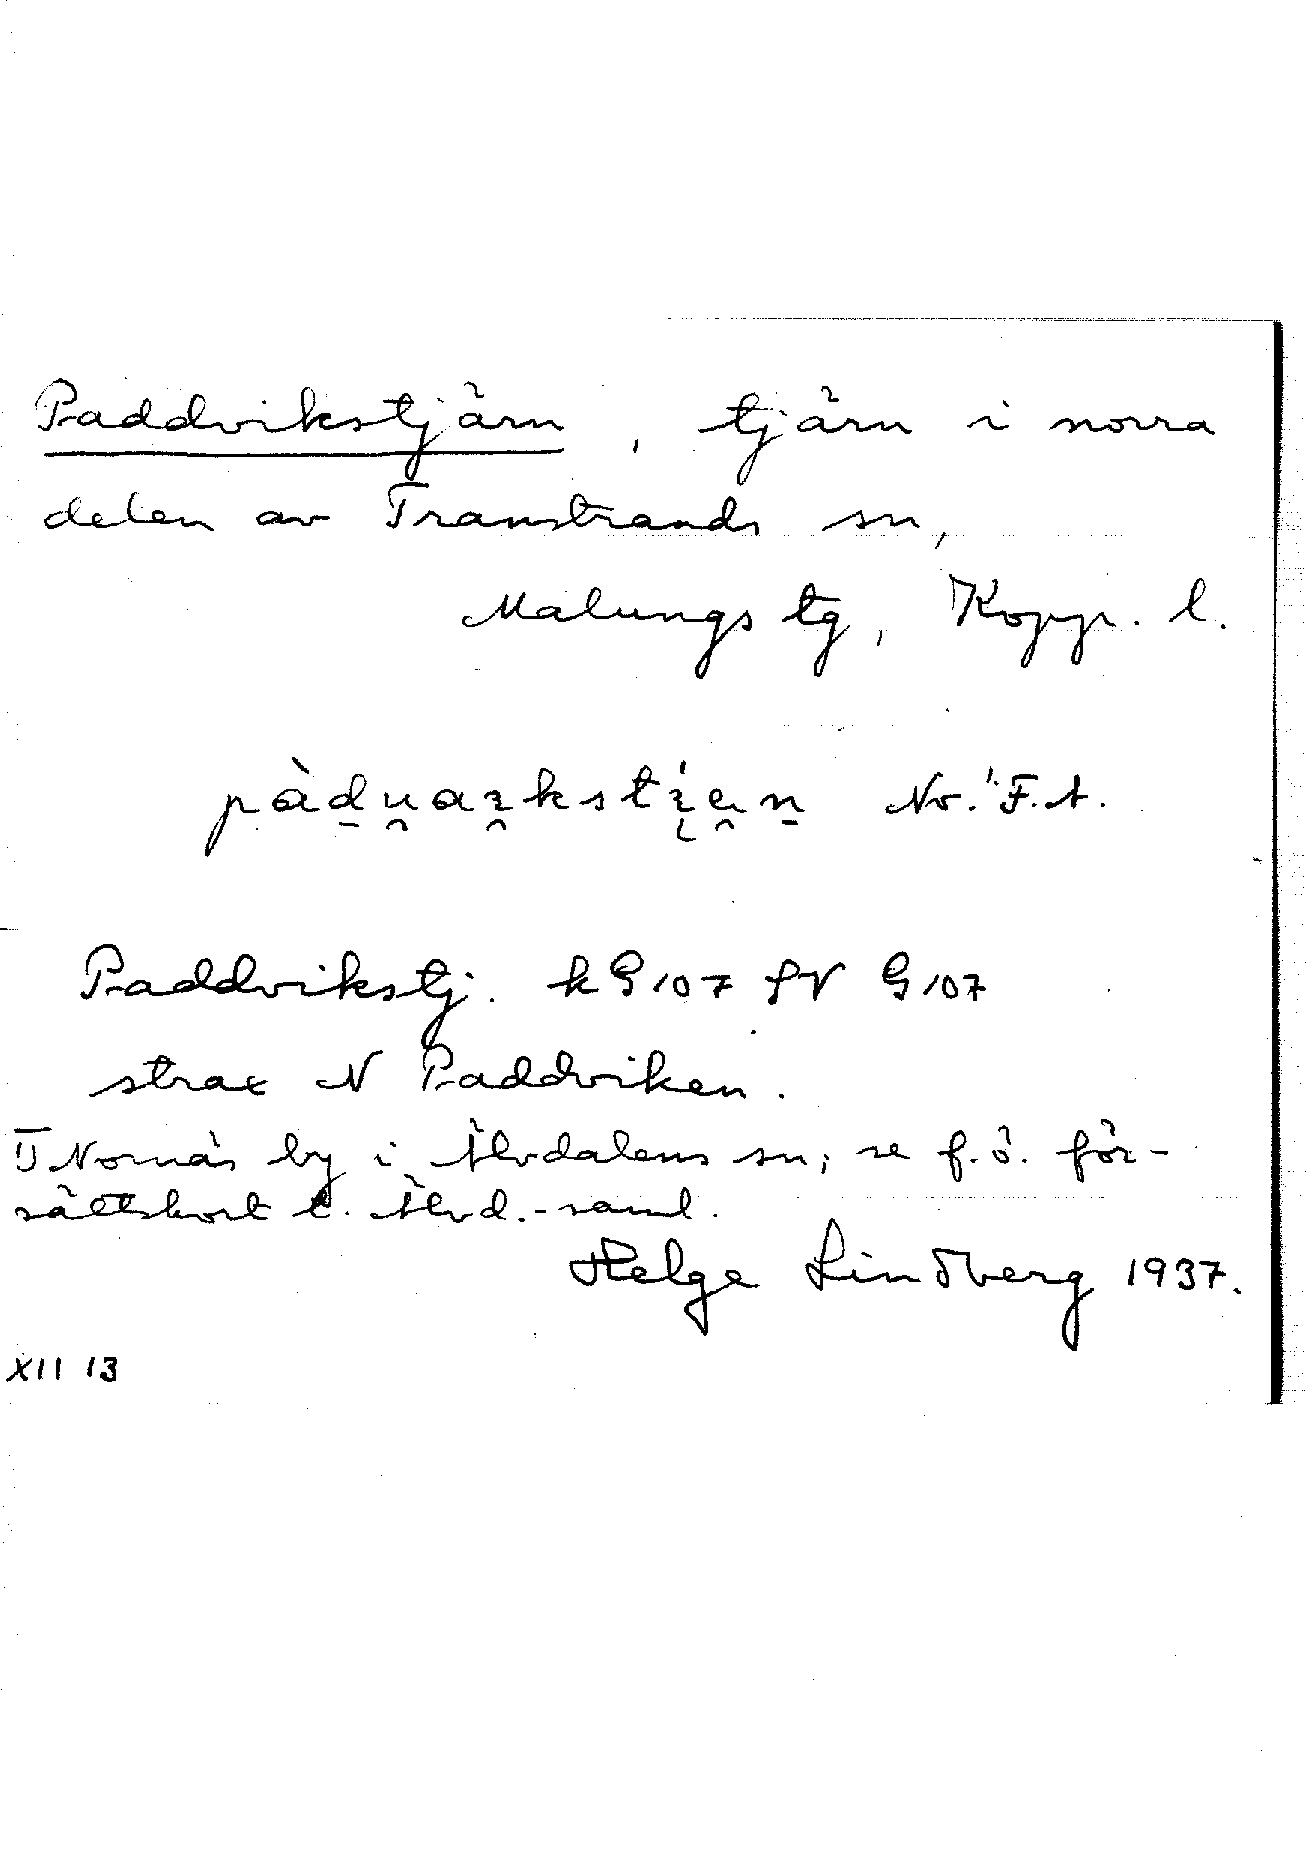 Paddvikstjärn, tjärn i norra
delen av Transtrands sn,
Malungs tg, Kopp. l.
Paddvikstj. kG107 fV G107
strax N Paddviken.
T Nornäs by i Älvdalens sn; se f. ö. för-
sättskort t. Älvd.-saml.
Helge Lindberg 1937.
XII 13